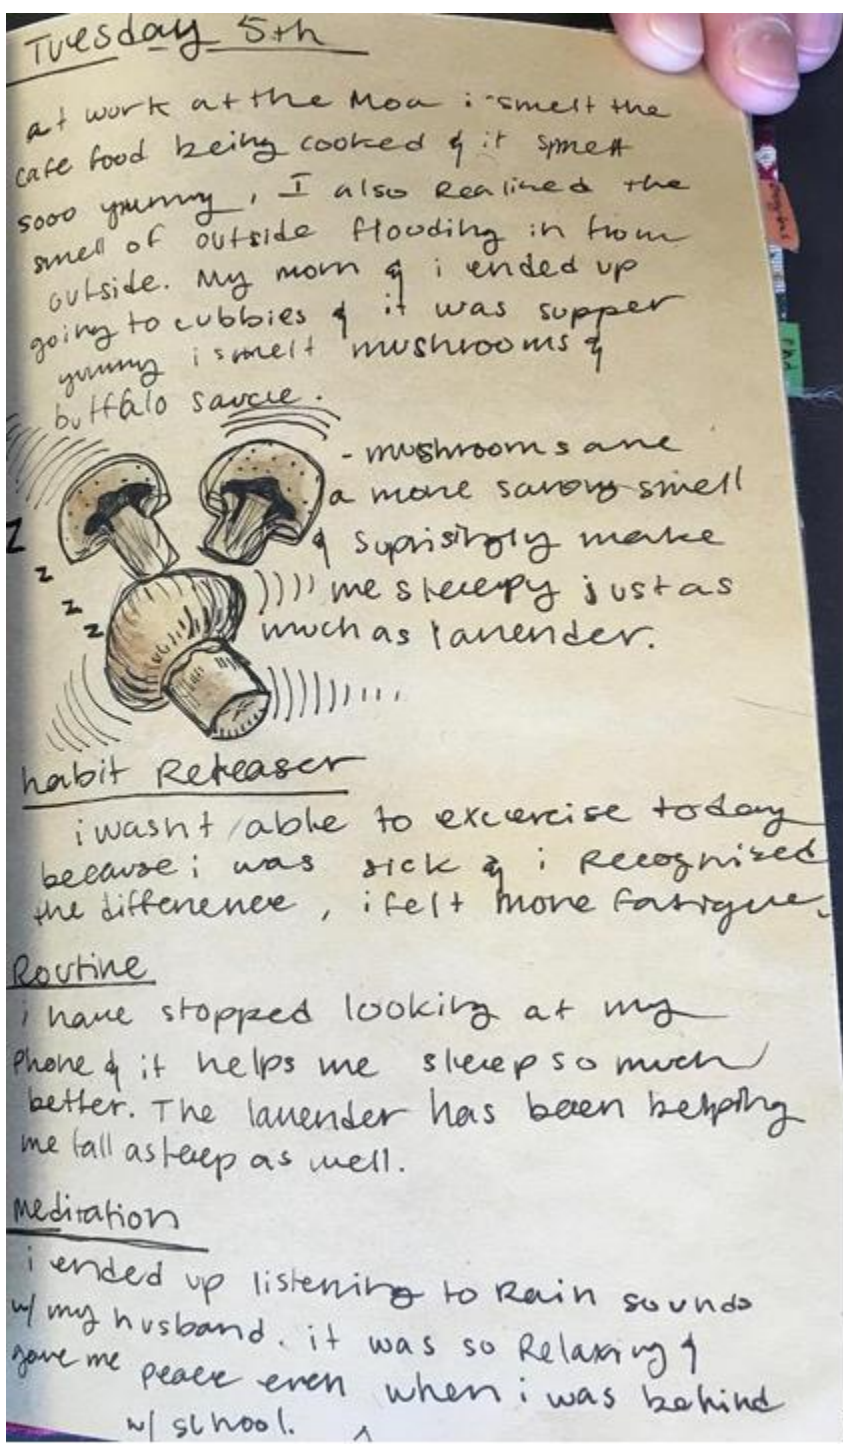 Tuesday 5th
at work at the Moa i smelt the
cafe food being cooked & it smelt
sooo yummy, I also Realized the
smell of outside flooding in from
outside. My mom & i ended up
going to cubbies & it was supper
yummy i smelt mushrooms &
buffalo saucce.
- mushrooms are
a more savory smell
& suprisingly make
me sleeepy just as
much as lavender.
z
z
z
z
habit Releaser
i wasnt able to excercise today
because i was sick & i Recognized
the difference, i felt more fatigue.
Routine
i have stopped looking at my
phone & it helps me sleep so much
better. The lavender has been helping
me fall asleep as well.
meditation
i ended up listening to Rain sounds
w/ my husband. it was so Relaxing &
gave me peace even when i was behind
w/ school.